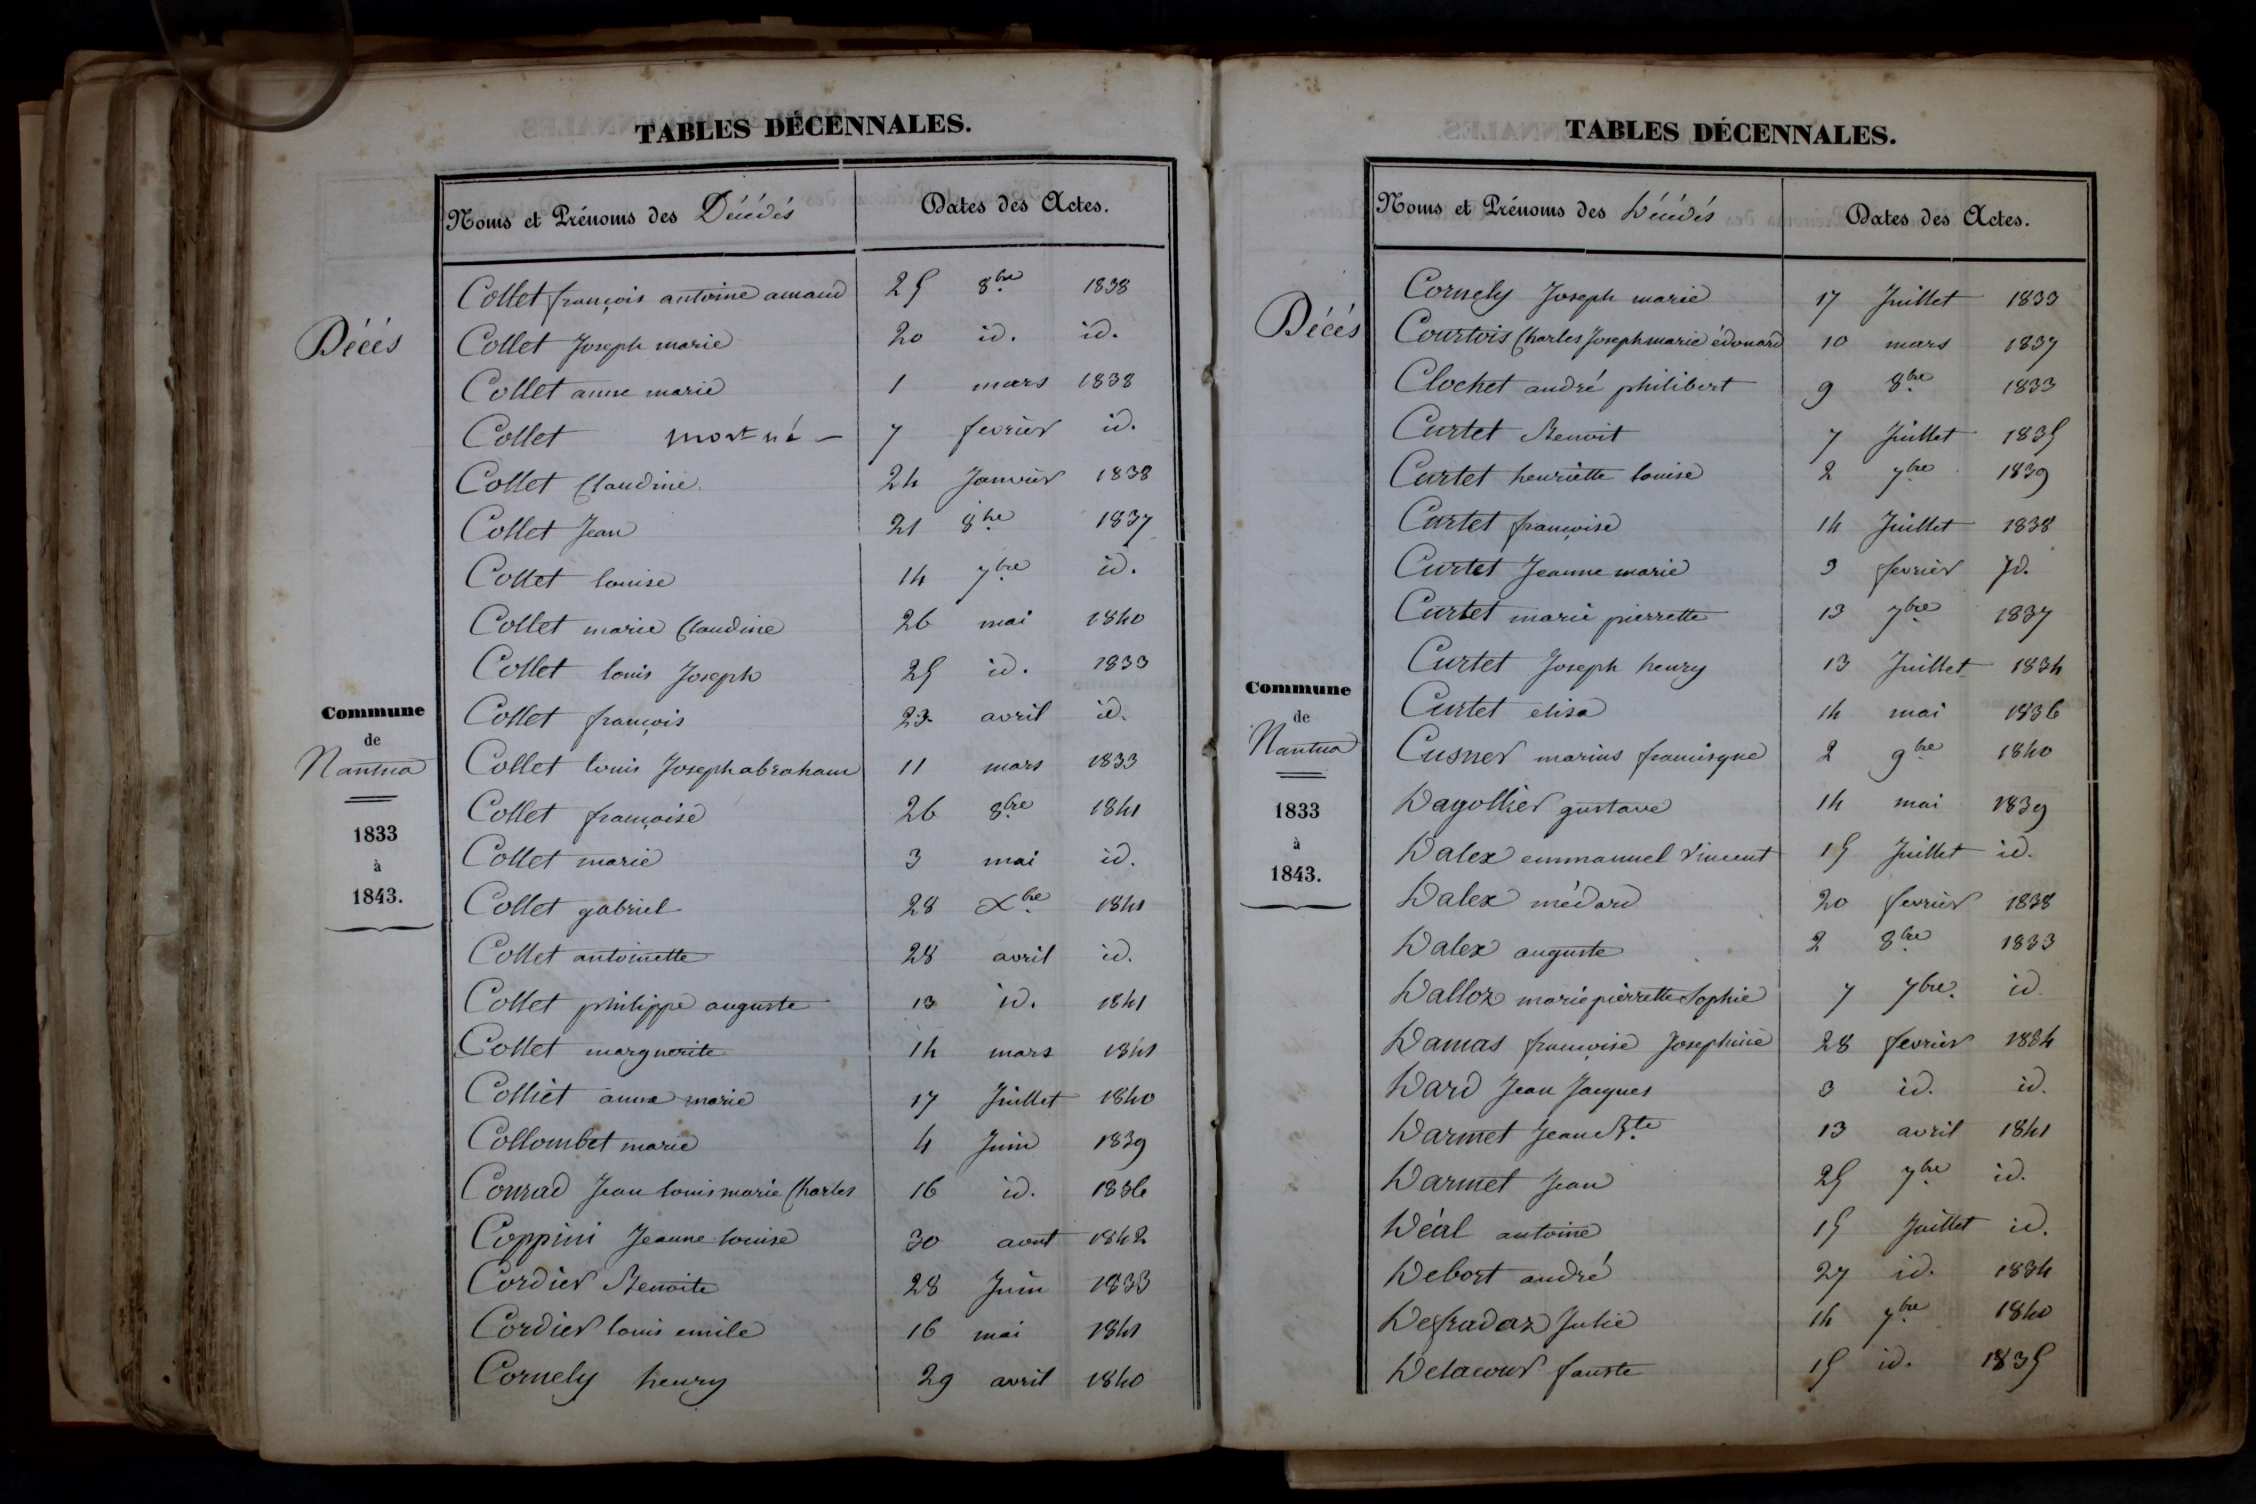 TABLES DÉCENNALES.
Noms et Prénoms des Décédés Dates des Actes.
Décès
Commune
de
Nantua
1833
à
1843.
Collet françois antoine amand 25 8bre 1838
Collet Joseph marie 20 id. id.
Collet anne marie 1 mars 1838
Collet mort né — 7 fevrier id.
Collet Claudine 24 Janvier 1838
Collet Jean 21 8bre 1837
Collet louise 14 7bre id.
Collet marie Claudine 26 mai 1840
Collet louis Joseph 25 id. 1833
Collet françois 23 avril id.
Collet louis Joseph abraham 11 mars 1833
Collet françoise 26 8bre 1841
Collet marie 3 mai id.
Collet gabriel 28 Xbre 1841
Collet antoinette 28 avril id.
Collet philippe auguste 13 id. 1841
Collet marguerite 14 mars 1841
Colliet anna marie 17 Juillet 1840
Collombet marie 4 Juin 1839
Conrad Jean louis marie Charles 16 id. 1836
Coppini Jeanne louise 30 aout 1842
Cordier Benoite 28 Juin 1833
Cordier louis emile 16 mai 1841
Cornely henry 29 avril 1840
TABLES DÉCENNALES.
Noms et Prénoms des Décédés Dates des Actes.
Décés
Commune
de
Nantua
1833
à
1843.
Cornely Joseph marie 17 Juillet 1833
Courtois Charles Joseph marie édouard 10 mars 1837
Clochet andré philibert 9 8bre 1833
Curtet Benoit 7 Juillet 1835
Curtet henriette louise 2 7bre 1839
Curtet françoise 14 Juillet 1838
Curtet Jeanne marie 3 fevrier Id.
Curtet marie pierrette 13 7bre 1837
Curtet Joseph henry 13 Juillet 1834
Curtet elisa 14 mai 1836
Cusner marius francisque 2 9bre 1840
Dagollier gustave 14 mai 1839
Dalex emmanuel vincent 15 Juillet id.
Dalex médard 20 fevrier 1838
Dalex auguste 2 8bre 1833
Dalloz marie pierrette Sophie 7 7bre. id
Damas françoise Josephine 28 fevrier 1834
Dard Jean Jacques 3 id. id.
Darmet Jean Bte 13 avril 1841
Darmet Jean 25 7bre id.
Déal antoine 15 Juillet id.
Debort andré 27 id. 1834
Defradaz Julie 14 7bre 1840
Delacour fauste 15 id. 1835